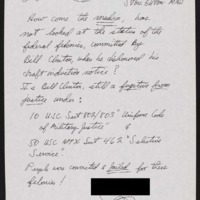 How come the media, has
not looked at the status of the
federal felonies, committed By
Bill Clinton, when he dishonored his
draft induction notice?
Is Bill Clinton, still a fugitive from
justice under:
10 USC Sect 802/803 "Uniform Code
of Military Justice" &
50 USC APPX Sect 462 "Selective
Service"
People were convicted & jailed for these
felonies!